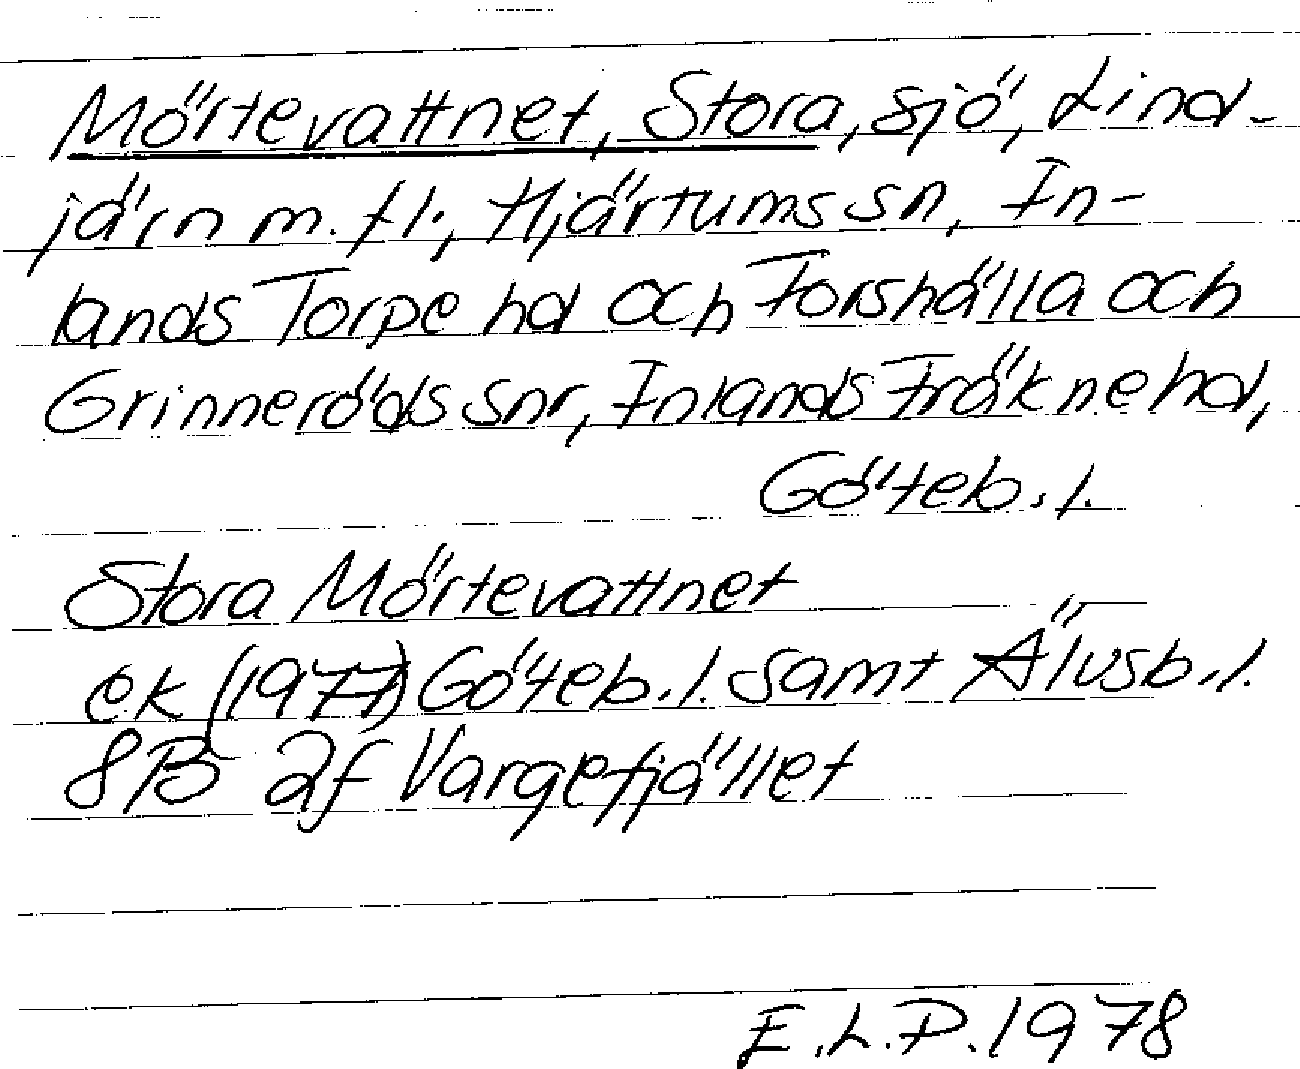 Mörtevattnet, Stora, sjö, Lind-
järn m.fl., Hjärtums sn, In-
lands Torpe hd och Forshälla och
Grinneröds snr, Inlands Fräkne hd,
Göteb.l.
Stora Mörtevattnet
ek (1977) Göteb.l. samt Älvsb.l.
8B 2f Vargefjället
E.L.P. 1978